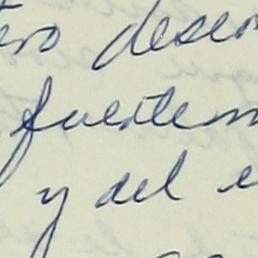 ero deseo
fuertem
y del e